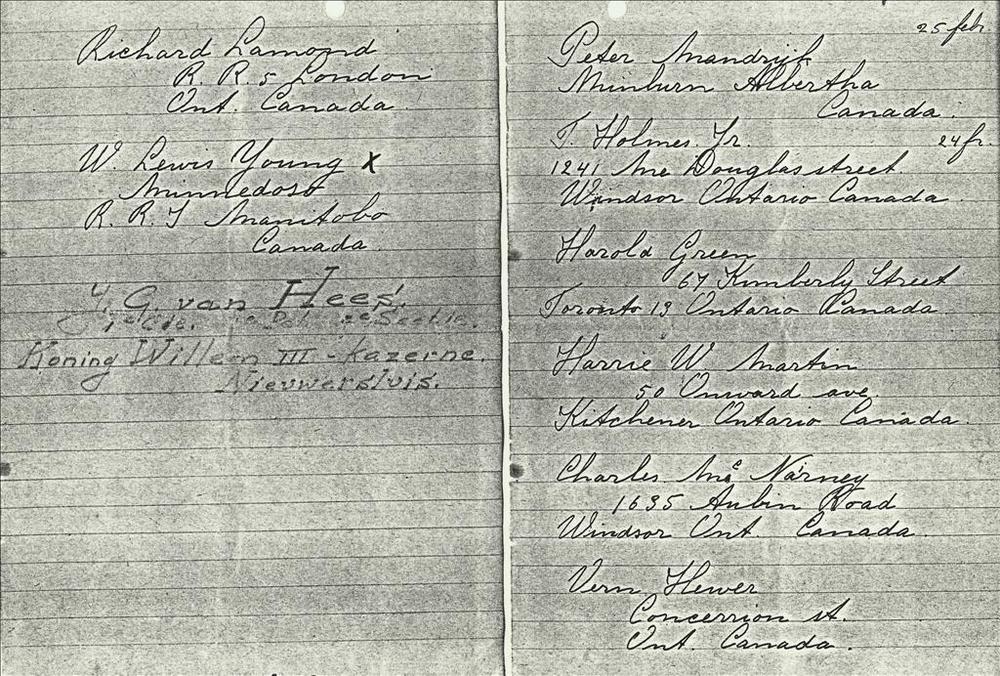 Richard Lamond
R. R. 5 London
Ont. Canada.
W. Lewis Young X
Minnedosa
R. R. 1 Manitobo
Canada.
G. van Hees.
1e Cie. Sectie.
Koning Willem III - kazerne.
Nieuwersluis.
25 feb
Peter Mandryk
Minburn Albertha
Canada.
T. Holmes. Jr. 24 fr.
1241 Mc Douglas street.
Windsor Ontario Canada.
Harold Green
67 Kimberly Street
Toronto 13 Ontario Canada.
Harrie W. Martin
50 Onward ave.
Kitchener Ontario Canada.
Charles Mc Narney
1635 Aubin Road
Windsor Ont. Canada.
Vern Hewer
Concerrion st.
Ont. Canada.